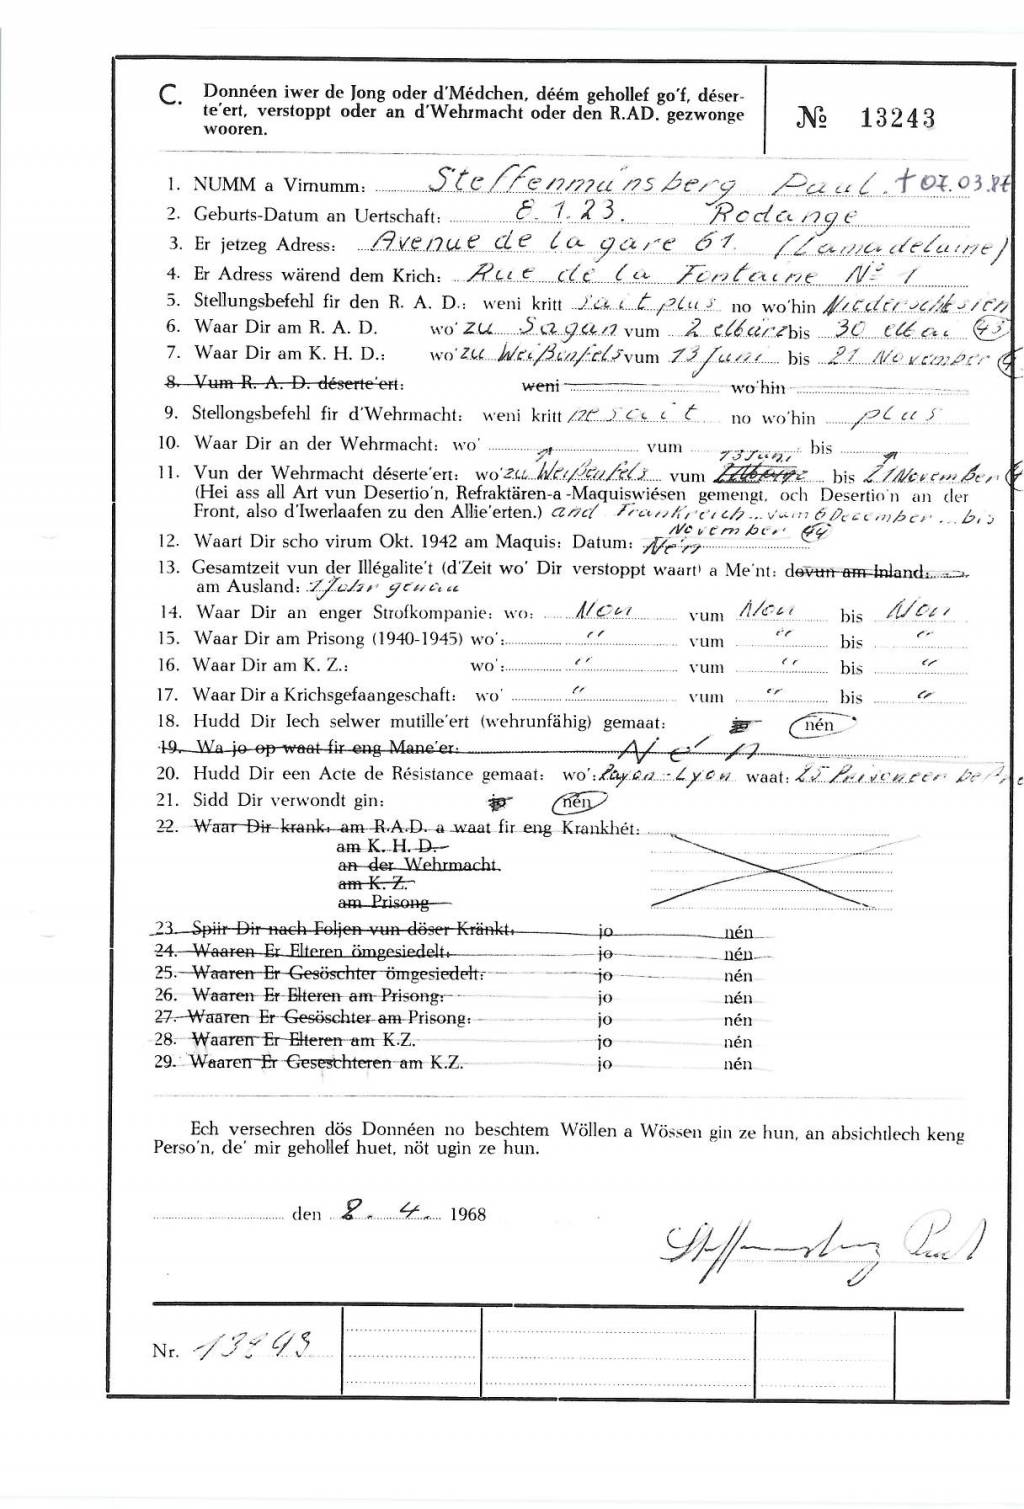 C. Donnéen iwer de Jong oder d'Médchen, déém gehollef go'f, déser-
te'ert, verstoppt oder an d'Wehrmacht oder den R.AD. gezwonge
wooren.
№ 13243
1. NUMM a Virnumm: Steffenmünsberg Paul. † 07.03.86
2. Geburts-Datum an Uertschaft: 8.1.23. Rodange
3. Er jetzeg Adress: Avenue de la gare 61. (Lamadelaine)
4. Er Adress wärend dem Krich: Rue de la Fontaine No 1
5. Stellungsbefehl fir den R. A. D.: weni kritt sait plus no wo'hin Niederschlesien
6. Waar Dir am R. A. D. wo' zu Sagan vum 2 März bis 30 Mai 43
7. Waar Dir am K. H. D.: wo' zu Weißenfels vum 13 Juni bis 21 November
8. Vum R. A. D. déserte'ert: weni wo'hin
9. Stellongsbefehl fir d'Wehrmacht: weni kritt ne sait no wo'hin plus
10. Waar Dir an der Wehrmacht: wo' vum bis
13 Juni
11. Vun der Wehrmacht déserte'ert: wo' zu Weißenfels vum bis 21 November
(Hei ass all Art vun Desertio'n, Refraktären-a-Maquiswiésen gemengt, och Desertio'n an der
Front, also d'Iwerlaafen zu den Allie'erten.) and Frankreich vum 6 December bis
November 44
12. Waart Dir scho virum Okt. 1942 am Maquis: Datum: Nén
13. Gesamtzeit vun der Illégalite't (d'Zeit wo' Dir verstoppt waart) a Me'nt: dovun am Inland:
am Ausland: 1 Johr genau
14. Waar Dir an enger Strofkompanie: wo: Non vum Non bis Non
15. Waar Dir am Prisong (1940-1945) wo': " vum " bis "
16. Waar Dir am K. Z.: wo': " vum " bis "
17. Waar Dir a Krichsgefaangeschaft: wo' " vum " bis "
18. Hudd Dir Iech selwer mutille'ert (wehrunfähig) gemaat: jo nén
19. Wa jo op waat fir eng Mane'er: Nén
20. Hudd Dir een Acte de Résistance gemaat: wo': Lyon waat: 25 Prisoneer
21. Sidd Dir verwondt gin: jo nén
22. Waar Dir krank: am R.A.D. a waat fir eng Krankhét:
am K. H. D.
an der Wehrmacht
am K. Z.
am Prisong
23. Spiir Dir nach Foljen vun döser Kränkt: jo nén
24. Waaren Er Elteren ömgesiedelt: jo nén
25. Waaren Er Gesöschter ömgesiedelt: jo nén
26. Waaren Er Elteren am Prisong: jo nén
27. Waaren Er Gesöschter am Prisong: jo nén
28. Waaren Er Elteren am K.Z. jo nén
29. Waaren Er Geseschteren am K.Z. jo nén
Ech versechren dös Donnéen no beschtem Wöllen a Wössen gin ze hun, an absichtlech keng
Perso'n, de' mir gehollef huet, nöt ugin ze hun.
den 8. 4. 1968
Steffenmünsberg Paul
Nr. 13243